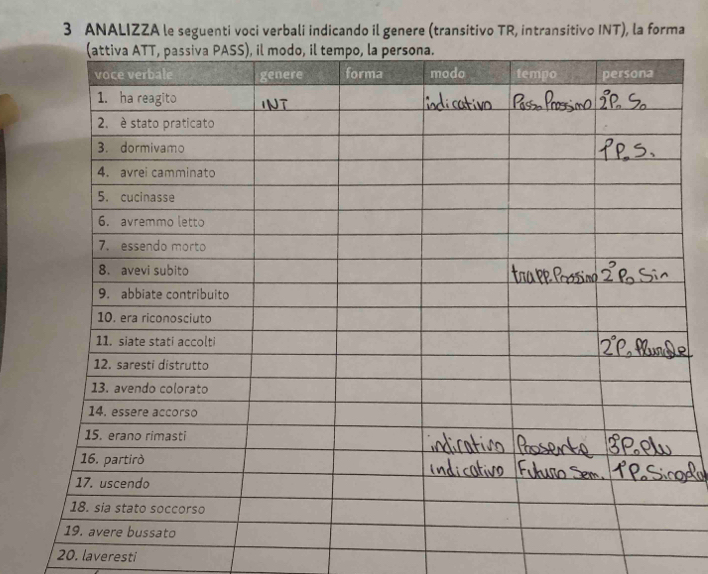 3 ANALIZZA le seguenti voci verbali indicando il genere (transitivo TR, intransitivo INT), la forma
(attiva ATT, passiva PASS), il modo, il tempo, la persona.
voce verbale genere forma modo tempo persona
1. ha reagito INT indicativo Pass. Prossimo 2°P. S.
2. è stato praticato
3. dormivamo 1°P. S.
4. avrei camminato
5. cucinasse
6. avremmo letto
7. essendo morto
8. avevi subito trapp. Prossimo 2°P. Sin
9. abbiate contribuito
10. era riconosciuto
11. siate stati accolti 2°P. Plurale
12. saresti distrutto
13. avendo colorato
14. essere accorso
15. erano rimasti indicativo Presente 3°P. Plu
16. partirò indicativo Futuro Sem. 1°P.
17. uscendo
18. sia stato soccorso
19. avere bussato
20. laveresti